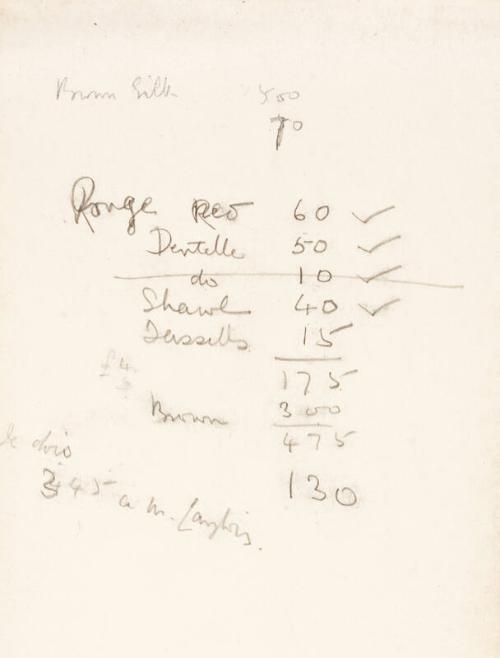 Brown Silk 500
70
Rouge Red 60 ✓
Dentelle 50 ✓
do 10 ✓
Shawl 40 ✓
Tassells 15
175
£4
Brown 300
475
Je dois
345 a M. Langlois.
130